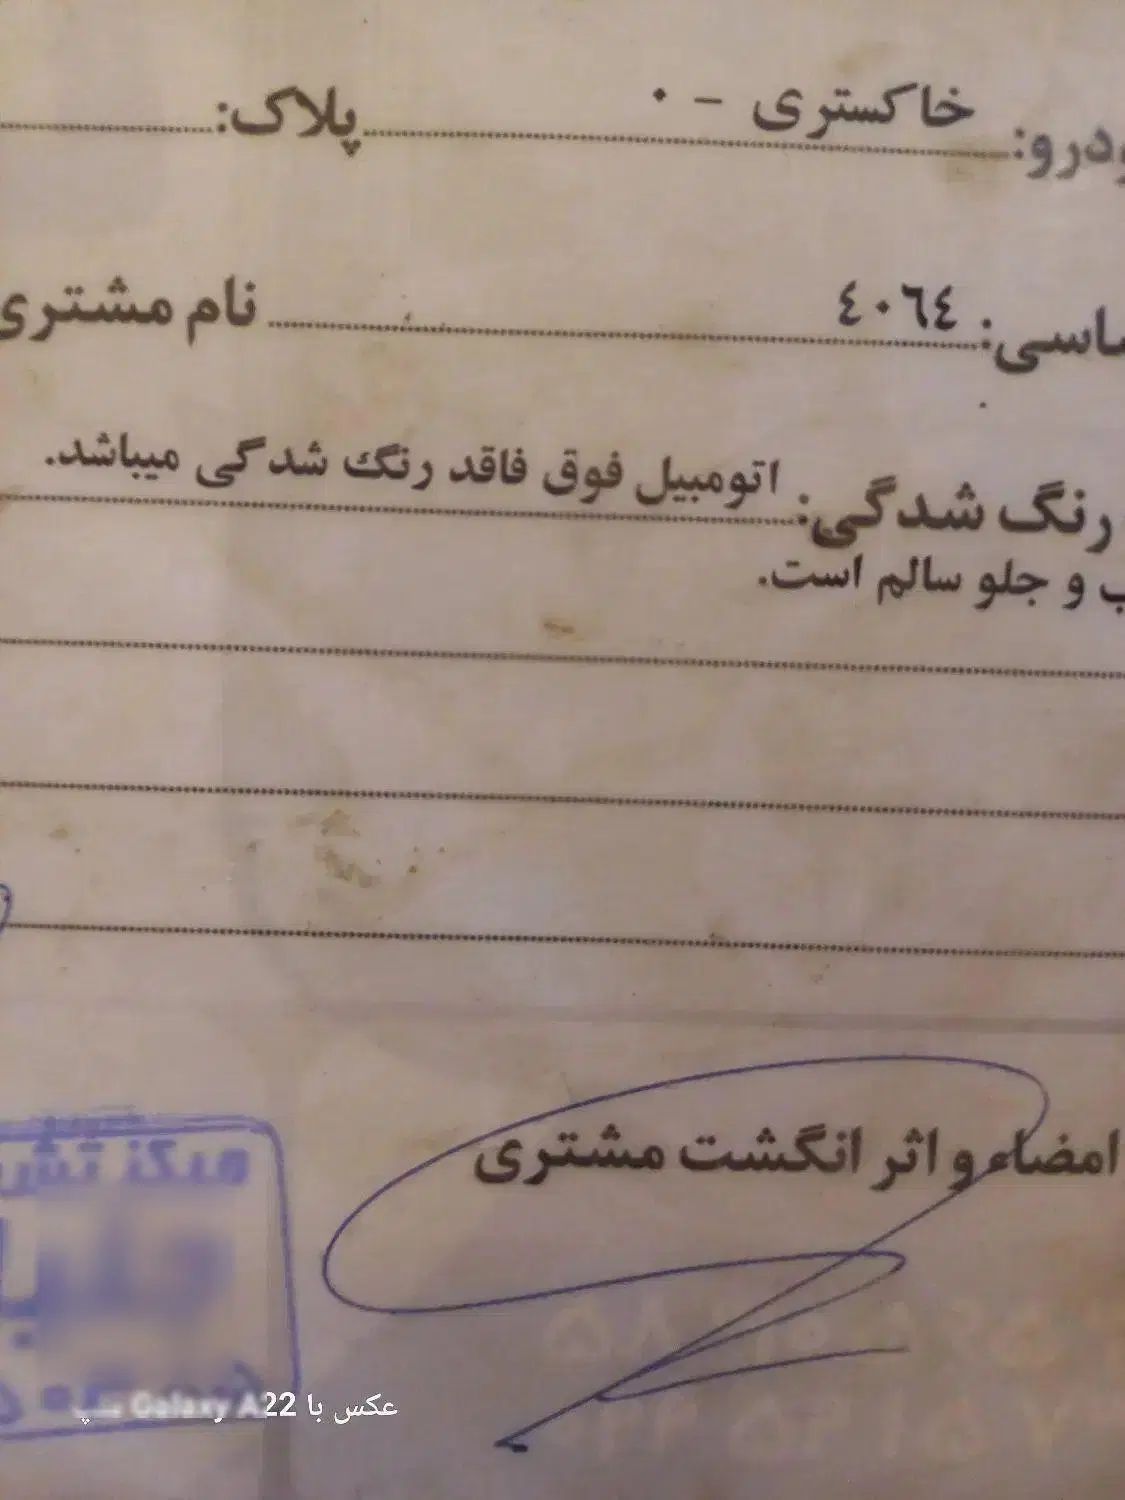 خاکستری - ۰ پلاک:
٤٠٦٤ نام مشتری
رنگ شدگی: اتومبیل فوق فاقد رنگ شدگی میباشد.
و جلو سالم است.
امضاء و اثر انگشت مشتری
مرکز
عکس با Galaxy A22